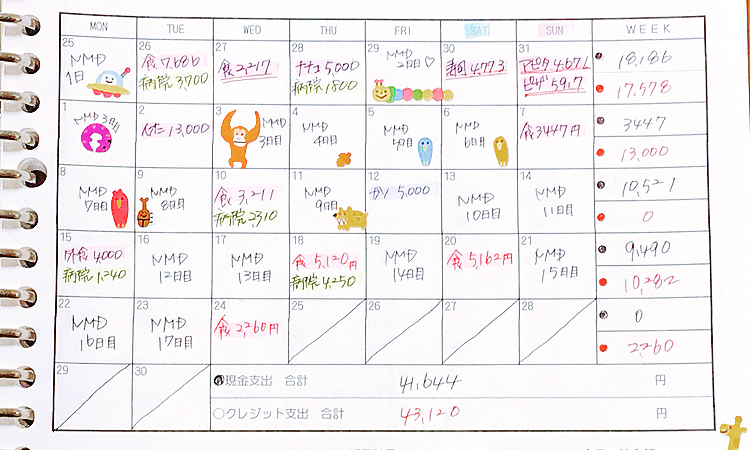 MON TUE WED THU FRI SAT SUN WEEK
25 26 27 28 29 30 31
NMD 1日
食 7,686
病院 3,700
食 2,217
ナナコ 5,000
病院 1,800
NMD 2日目♡
4,773
4,671
ピザ 5,917
18,186
17,578
1 2 3 4 5 6 7
NMD 3日目
イオン 13,000
NMD 3日目
NMD 4日目
NMD 5日目
NMD 6日目
食 3447円
3447
13,000
8 9 10 11 12 13 14
NMD 7日目
NMD 8日目
食 3,211
病院 2310
NMD 9日目
5,000
NMD 10日目
NMD 11日目
10,521
0
15 16 17 18 19 20 21
外食 4,000
病院 1,240
NMD 12日目
NMD 13日目
食 5,120円
病院 4,250
NMD 14日目
食 5,162円
NMD 15日目
9,490
10,282
22 23 24 25 26 27 28
NMD 16日目
NMD 17日目
食 2,260円
0
2,260
29 30
現金支出 合計 41,644 円
○クレジット支出 合計 43,120 円